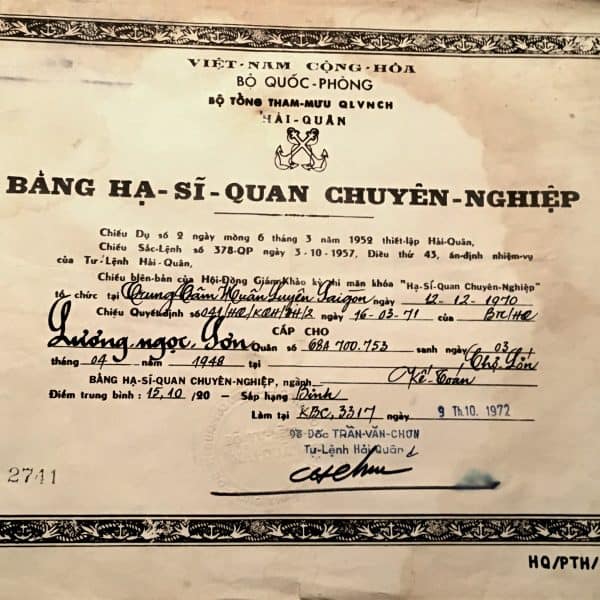 VIỆT-NAM CỘNG-HÒA
BỘ QUỐC-PHÒNG
BỘ TỔNG THAM-MƯU QLVNCH
HẢI-QUÂN
BẰNG HẠ-SĨ-QUAN CHUYÊN-NGHIỆP
Chiếu Dụ số 2 ngày mồng 6 tháng 3 năm 1952 thiết-lập Hải-Quân,
Chiếu Sắc-Lệnh số 378-QP ngày 3-10-1957, Điều thứ 43, ấn-định nhiệm-vụ
của Tư-Lệnh Hải-Quân,
Chiếu biên-bản của Hội-Đồng Giám Khảo kỳ thi mãn khóa "Hạ-Sĩ-Quan Chuyên-Nghiệp"
tổ chức tại Trung Tâm Huấn Luyện Saigon ngày 12-12-1970
Chiếu Quyết định số 041/HQ/KQH/2H/2 ngày 16-03-71 của BTL/HQ
CẤP CHO
Lương ngọc Sơn Quân số 68A 700.753 sanh ngày 03
tháng 04 năm 1948 tại Chợ Lớn
BẰNG HẠ-SĨ-QUAN CHUYÊN-NGHIỆP, ngành Kế-Toán
Điểm trung bình : 15,10 /20 - Sắp hạng Bình
Làm tại KBC.3317 ngày 9 Th.10. 1972
Đô Đốc TRẦN-VĂN-CHƠN
Tư-Lệnh Hải Quân
2741
HQ/PTH/